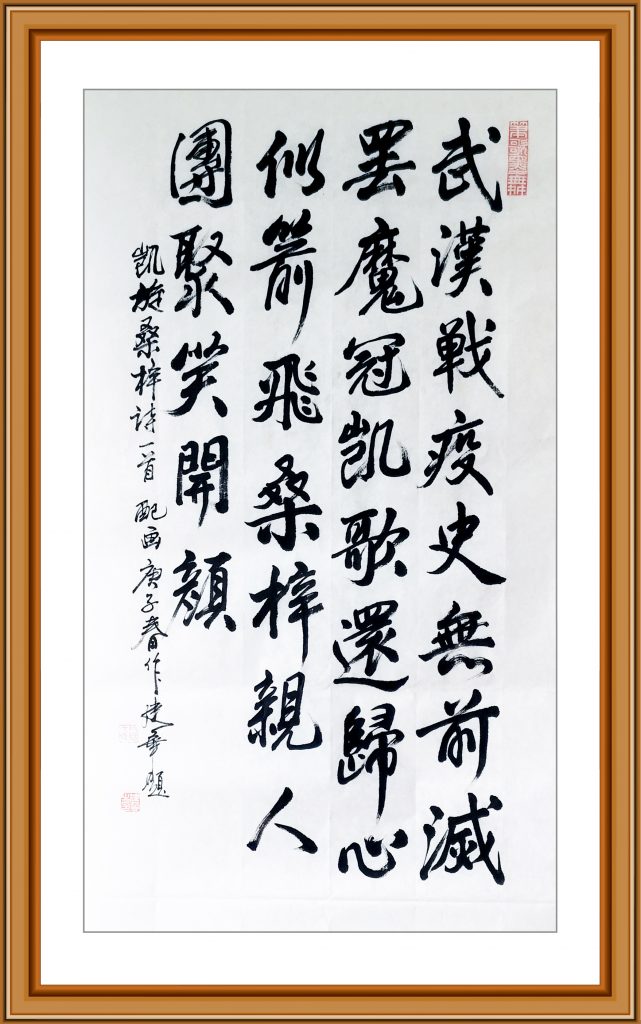 武漢戰疫史無前滅
罢魔冠凱歌還歸心
似箭飛桑梓親人
團聚笑開顏
凱旋桑梓诗一首 配画 庚子春作 建華題
筆歌墨舞